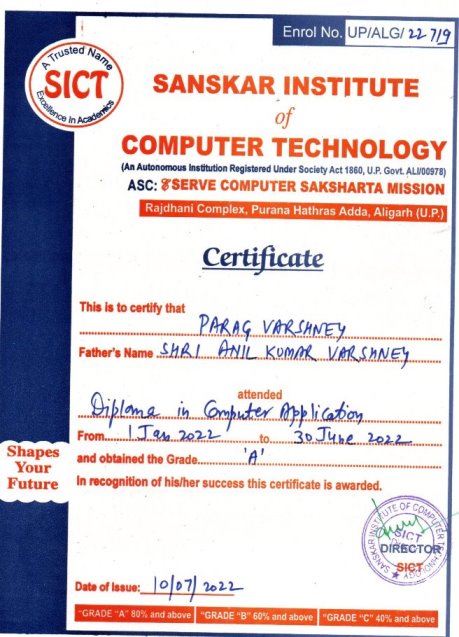 Enrol No. UP/ALG/ 22719
A Trusted Name
SICT
Excellence in Academics
SANSKAR INSTITUTE
of
COMPUTER TECHNOLOGY
(An Autonomous Institution Registered Under Society Act 1860, U.P. Govt. ALI/00978)
ASC: SERVE COMPUTER SAKSHARTA MISSION
Rajdhani Complex, Purana Hathras Adda, Aligarh (U.P.)
Certificate
This is to certify that
PARAG VARSHNEY
Father's Name SHRI ANIL KUMAR VARSHNEY
attended
Diploma in Computer Application
From 1 Jan 2022 to 30 June 2022
and obtained the Grade 'A'
In recognition of his/her success this certificate is awarded.
Shapes
Your
Future
SANSKAR INSTITUTE OF COMPUTER TECHNOLOGY
SICT
DIRECTOR
SICT
Date of Issue: 10/07/2022
"GRADE "A" 80% and above "GRADE "B" 60% and above "GRADE "C" 40% and above